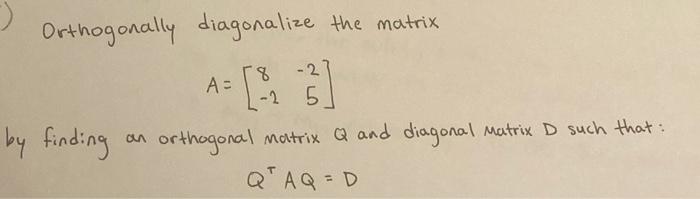 ) Orthogonally diagonalize the matrix
A = [8 -2
-2 5]
by finding an orthogonal matrix Q and diagonal matrix D such that:
Qᵀ AQ = D